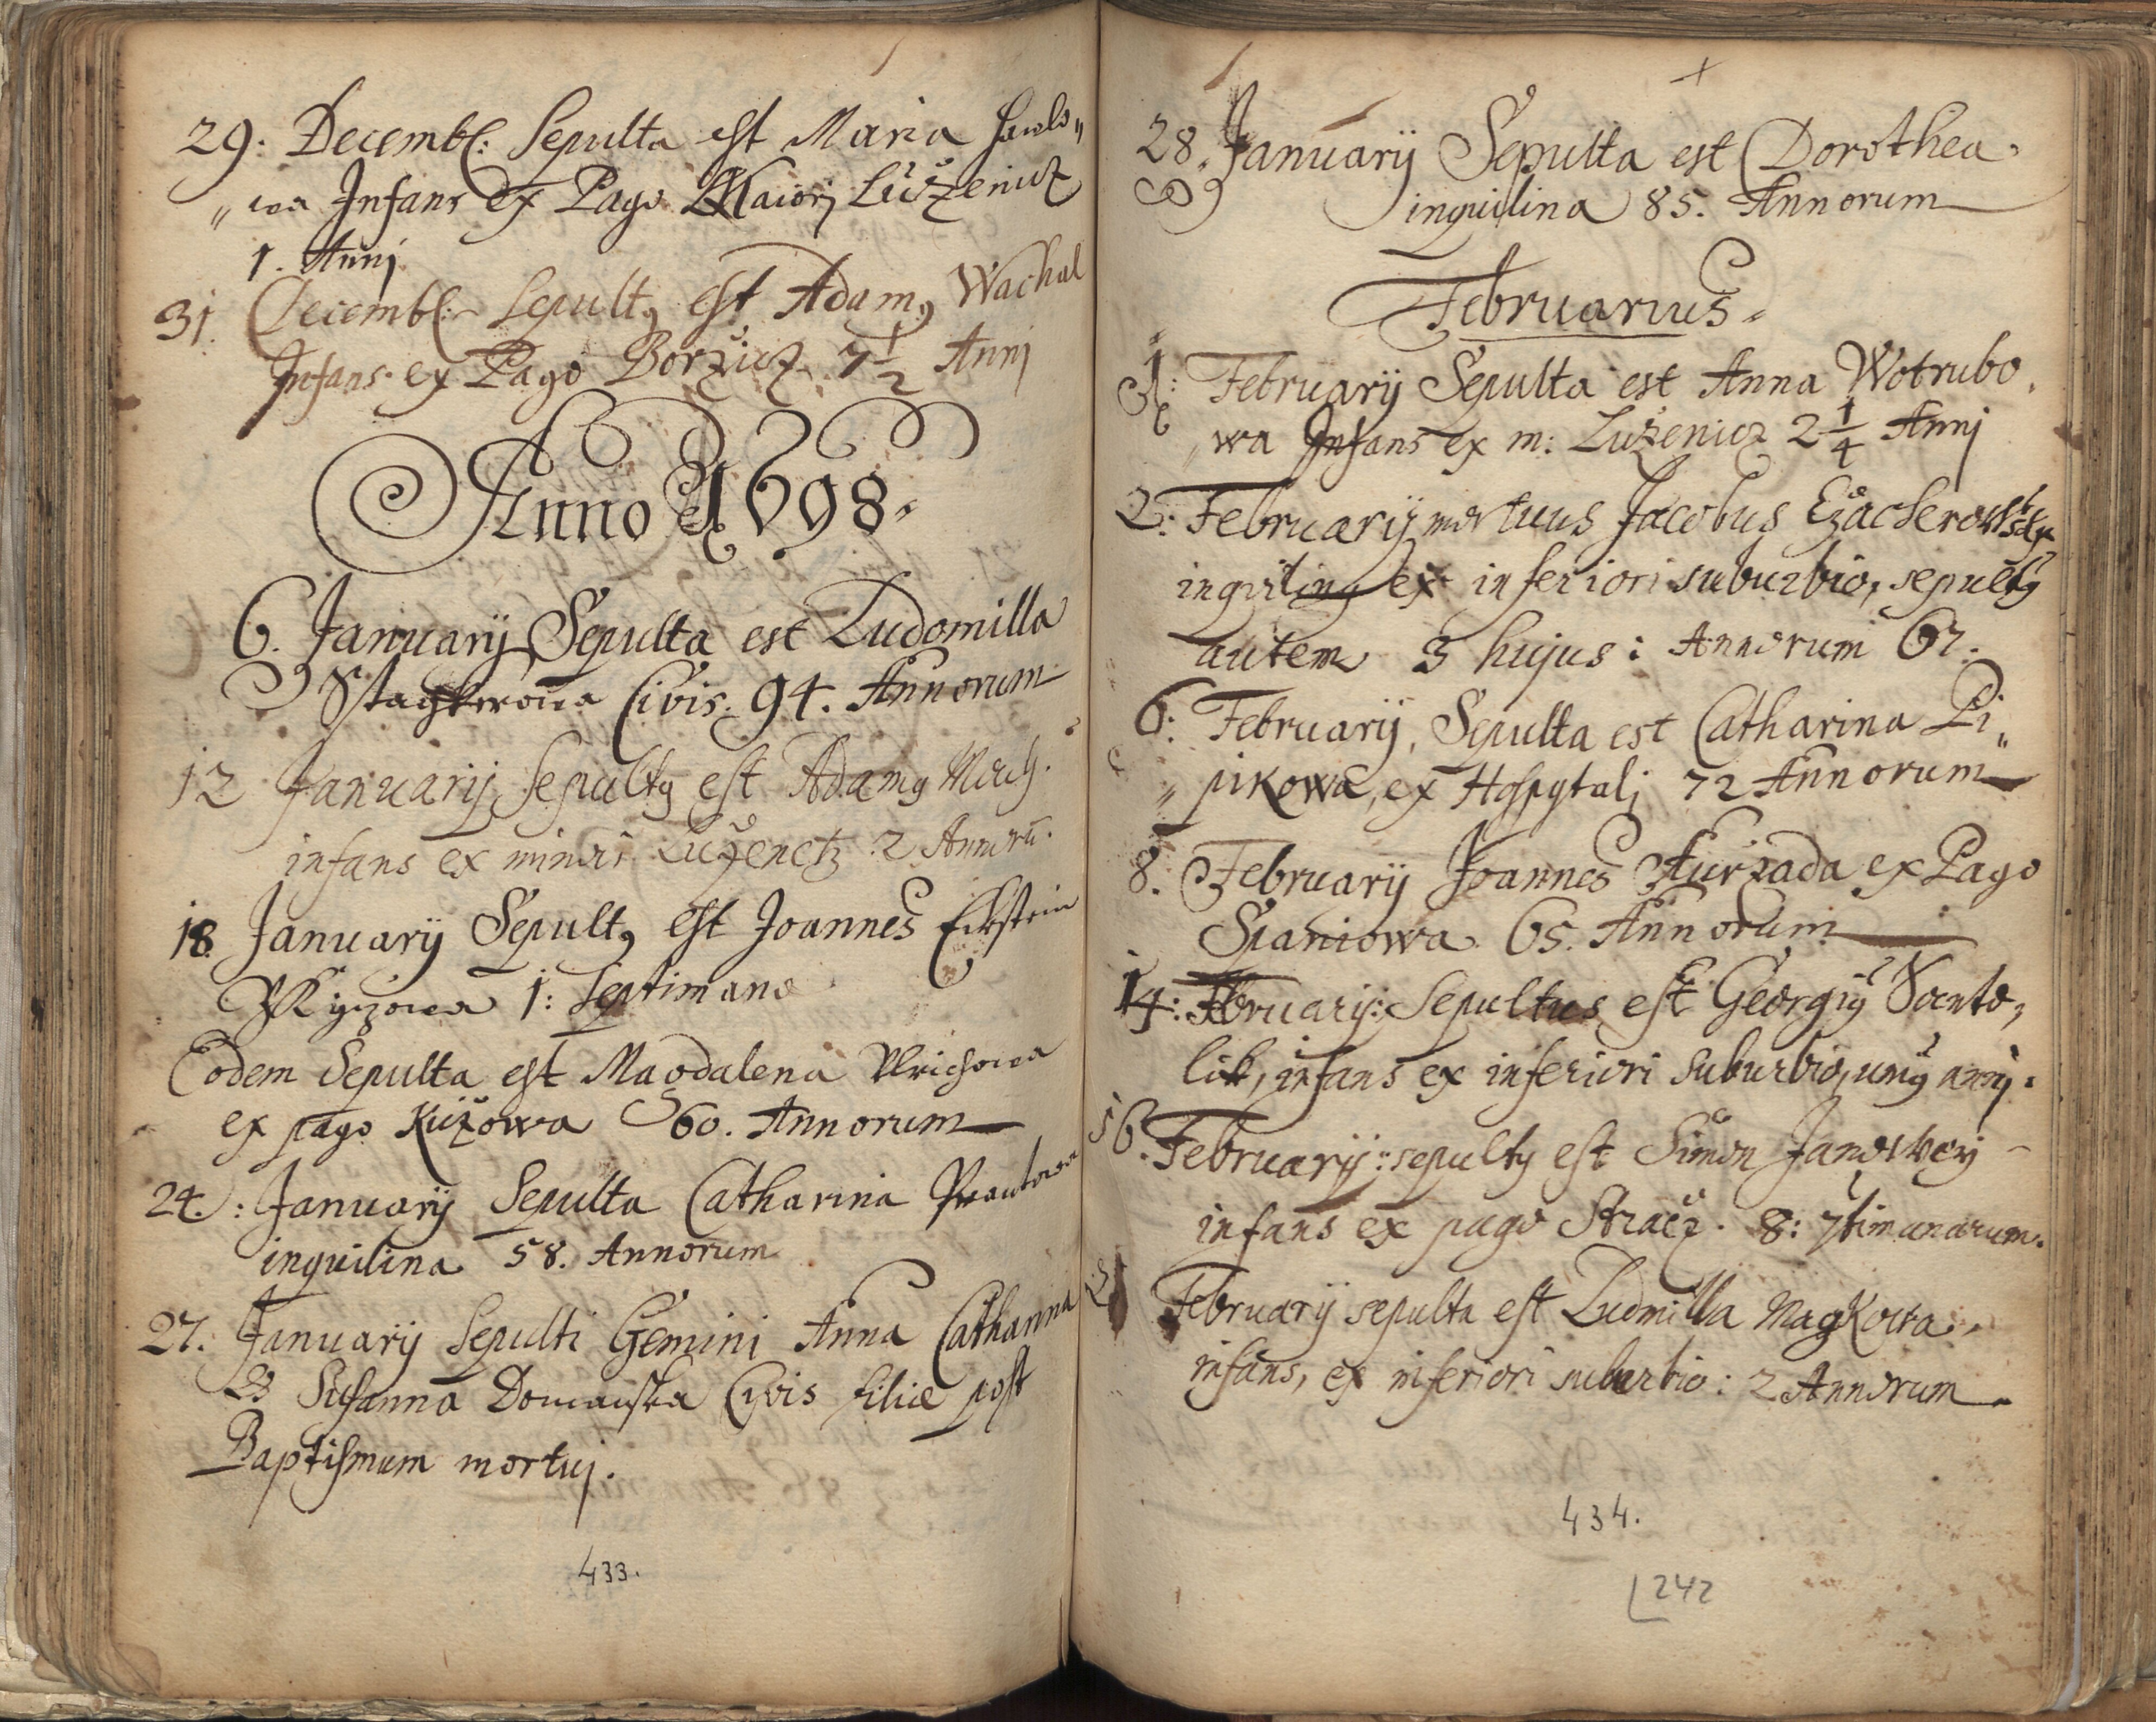 29: Decembr: Sepulta est Maria Hawlo„
„wa Infans ex Pago Maiorj Luženicz
1. Annj
31. Decembr: Sepultꝰ est Adamꝰ Wachal
Infans ex Pago Boržicz 7 1/2 Annj
Anno 1698.
6. Januarij Sepulta est Ludomilla
Civis. 94. Annorum
12 Januarij Sepultꝰ est Adamꝰ
infans ex minori Luženetz 2 Annorū.
18. Januarij Sepultꝰ est Joannes Eckstein
1: Septimanæ
Eodem Sepulta est Magdalena Ulrichowa
ex pago Kužowa 60. Annorum
24.: Januarij Sepulta Catharina
inquilina 58. Annorum
27. Januarij Sepulti Gemini Anna Catharina
& Susanna Domanska Civis filiæ post
Baptismum mortuj.
433.
28. Januarij Sepulta est Dorothea
inquilina 85. Annorum
Februarius.
1: Februarij Sepulta est Anna Wotrubo„
„wa Infans ex m: Luženicz 2 1/4 Annj
2: Februarij mortuus Jacobus
inquilinꝰ ex inferiori suburbio, sepultꝰ
autem 3 hujus: Annorum 67.
6: Februarij, Sepulta est Catharina Pi„
„pikowa, ex Hospytalj 72 Annorum
8. Februarij Joannes Furzada ex Pago
Spaniowa 65. Annorum
14: Februarij: Sepultus est Georgiꝰ
infans ex inferiori suburbio, uniꝰ annj.
16. Februarij: sepultꝰ est Simon
infans ex pago Stracz. 8: 7timanarum.
Februarij sepulta est Ludmilla Magkowa,
infans, ex inferiori suburbio: 2 Annorum
434.
242